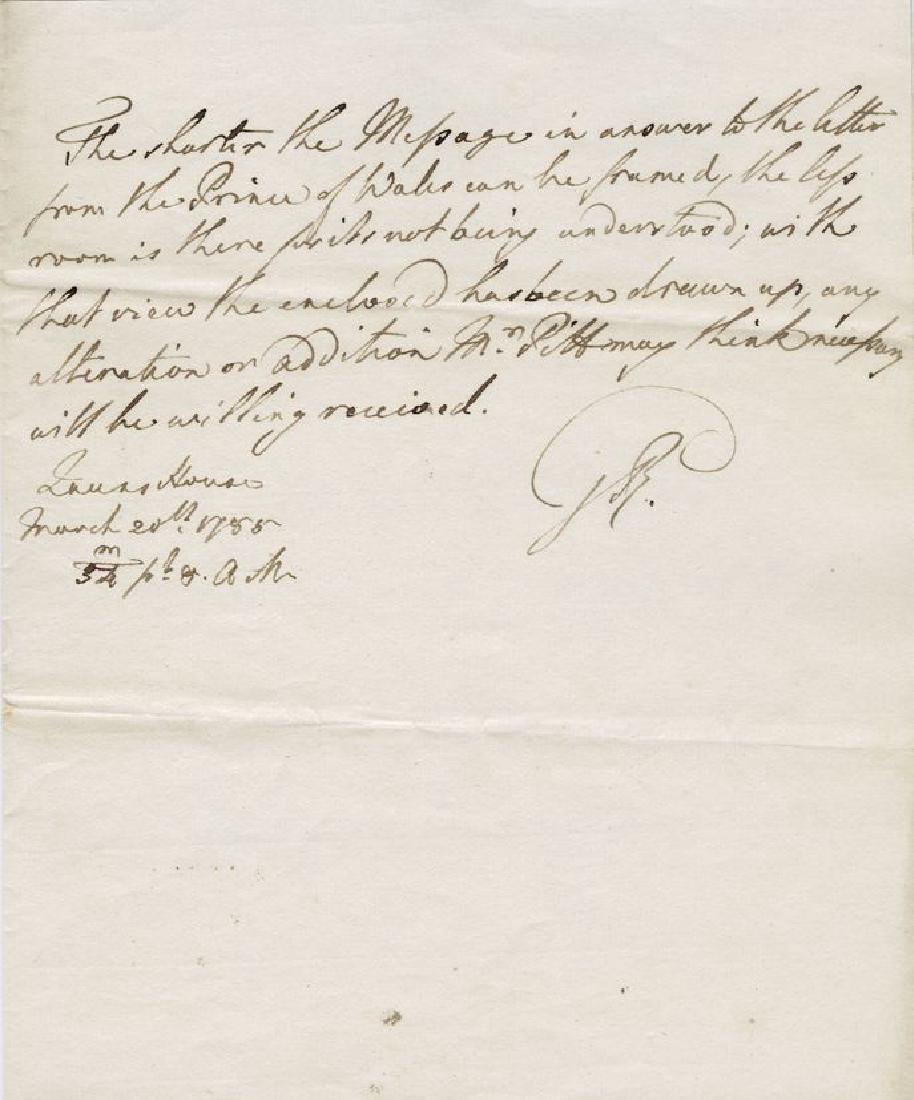 The shorter the Message in answer to the letter
from the Prince of Wales can be framed, the less
room is there for its not being understood; with
that view the enclosed has been drawn up, any
alteration or addition Mr. Pitt may think necessary
will be willing received.
GR.
Queens House
March 20th. 1788
m
54 pt. 8. AM.